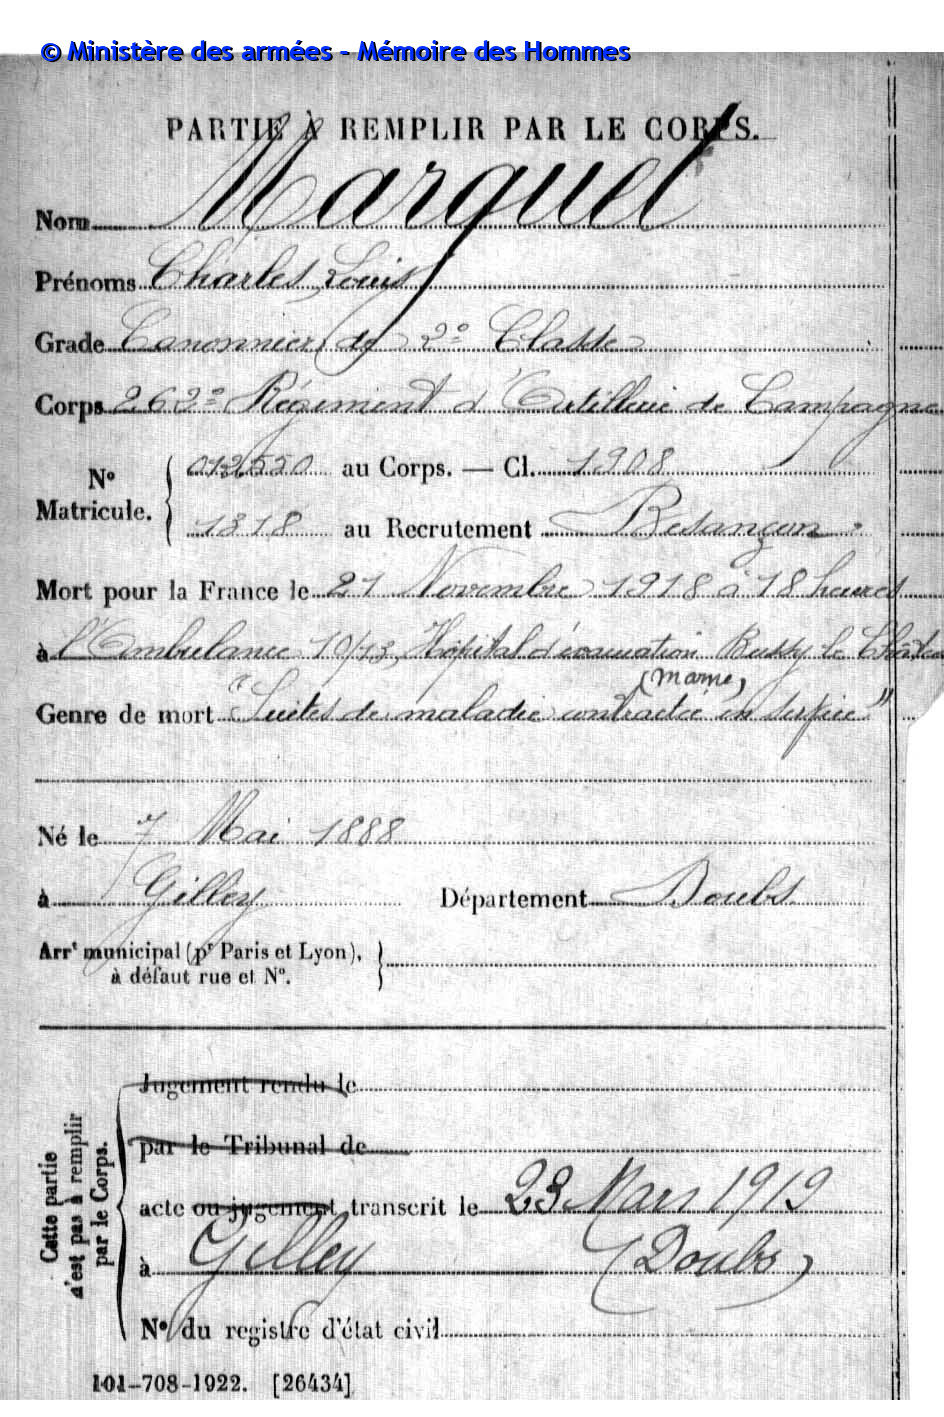 © Ministère des armées - Mémoire des Hommes
PARTIE À REMPLIR PAR LE CORPS.
Nom Marguet
Prénoms Charles, Louis
Grade Canonnier de 2e Classe
Corps 262e Régiment d'Artillerie de Campagne
No Matricule. 012550 au Corps. — Cl. 1908
1318 au Recrutement Besançon
Mort pour la France le 21 Novembre 1918 à 18 heures
à l'Ambulance 10/13, Hôpital d'évacuation Bussy le
(Marne)
Genre de mort "Suites de maladie contractée en service"
Né le 7 Mai 1888
à Gilley Département Doubs
Arrt municipal (pr Paris et Lyon),
à défaut rue et No.
Cette partie
n'est pas à remplir
par le Corps.
Jugement rendu le
par le Tribunal de
acte ou jugement transcrit le 23 Mars 1919
à Gilley (Doubs)
No du registre d'état civil
101-708-1922. [26434]